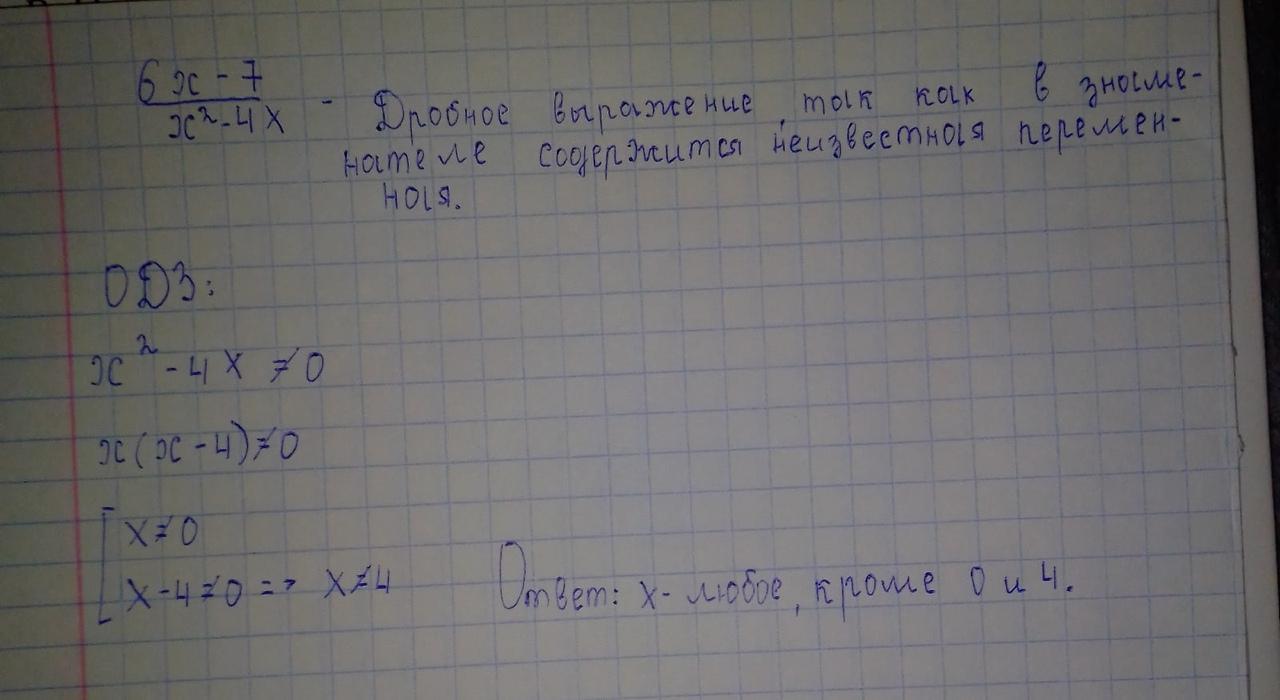 6x - 7
x² - 4x
- Дробное выражение, так как в знаме-
нателе содержится неизвестная перемен-
ная.
ОДЗ:
x² - 4x ≠ 0
x(x - 4) ≠ 0
[ x ≠ 0
x - 4 ≠ 0 => x ≠ 4
Ответ: x - любое, кроме 0 и 4.